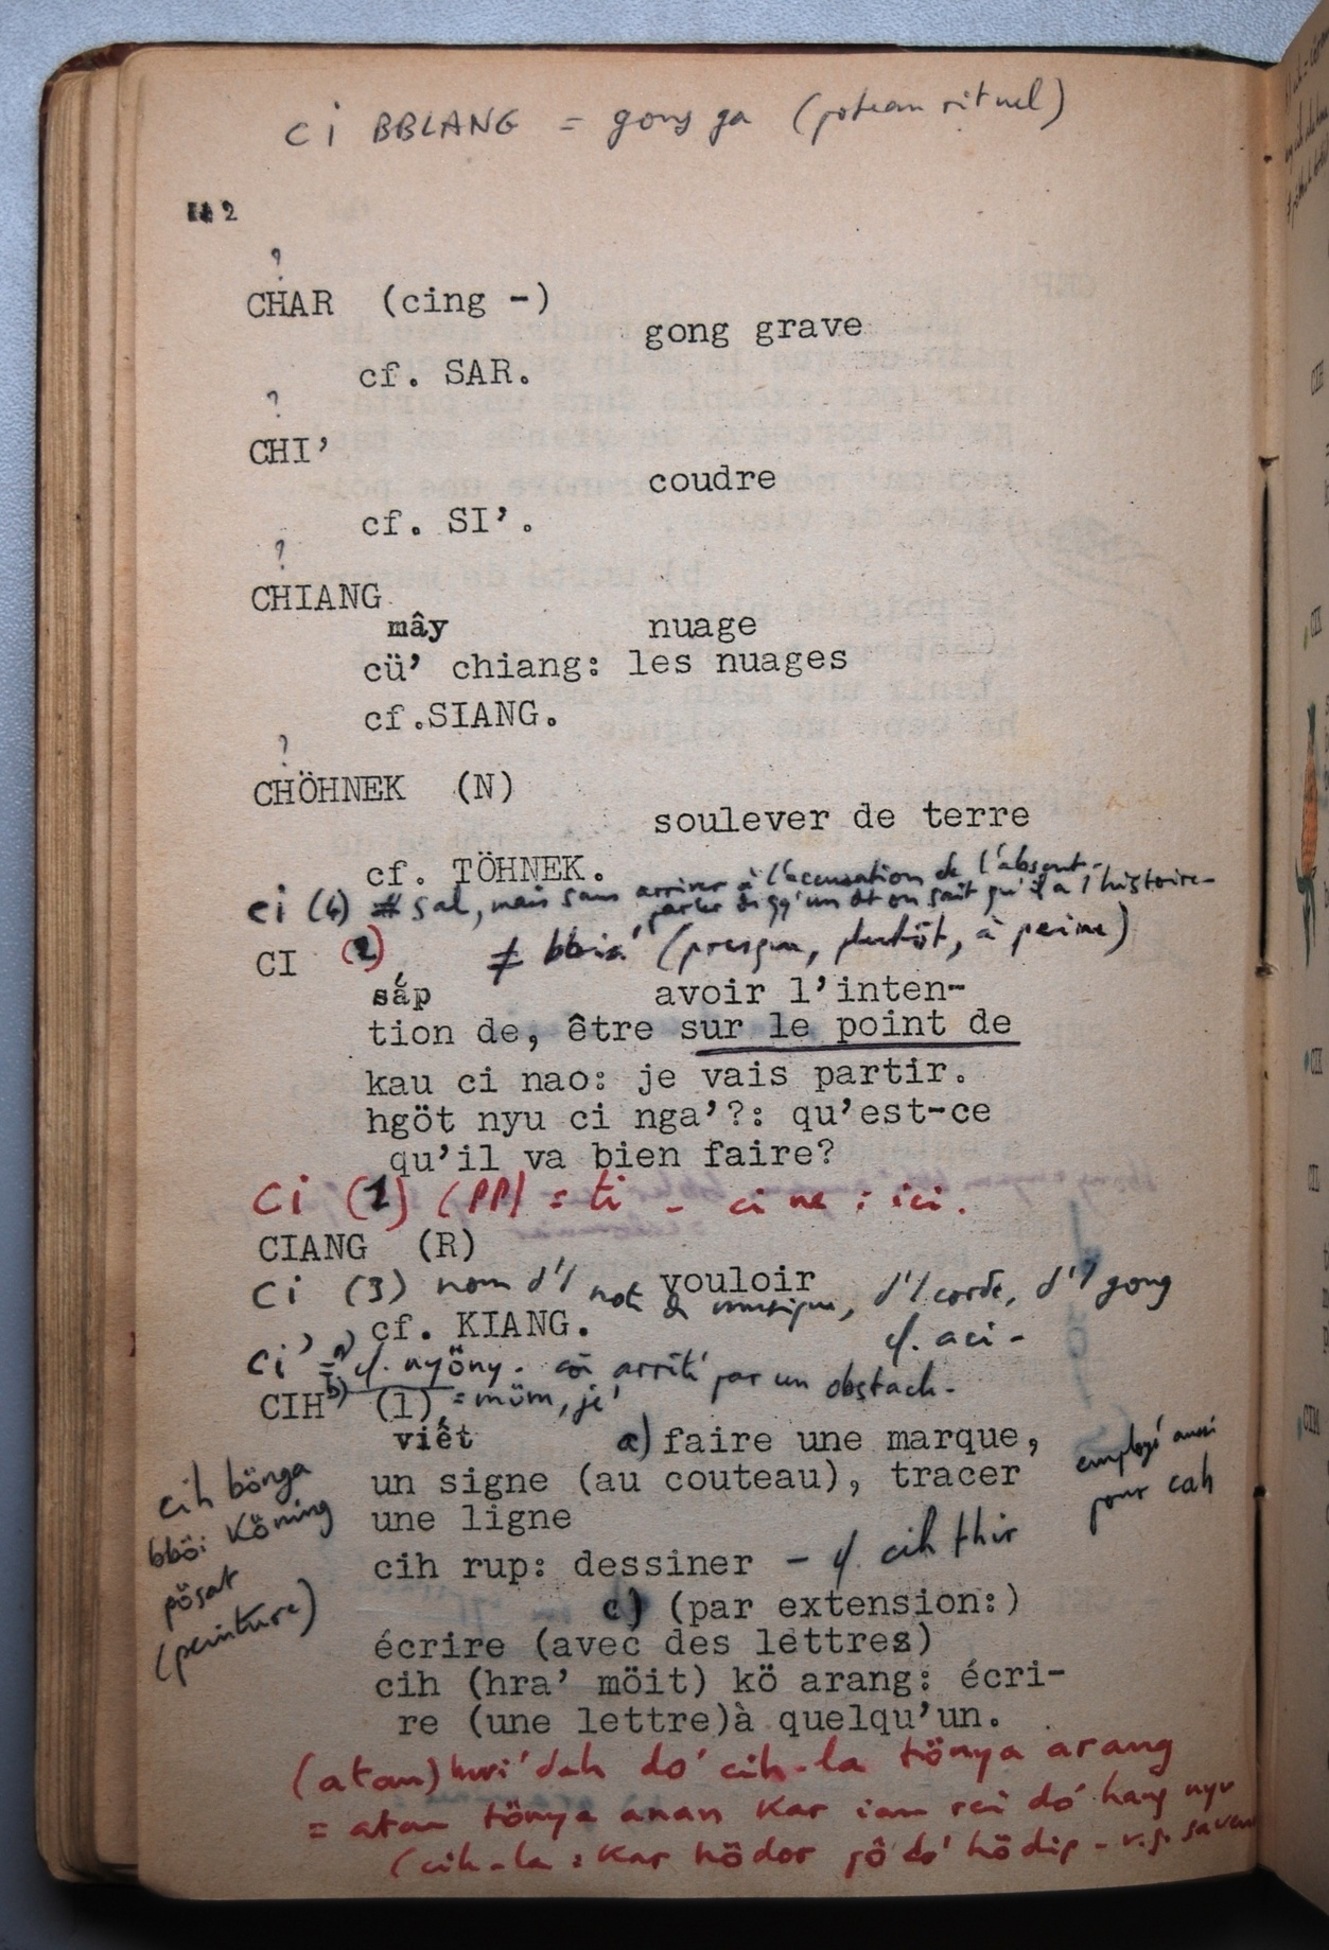 ci BBLANG = gong ga (poteau rituel)
2
?
CHAR (cing -)
gong grave
cf. SAR.
?
CHI’
coudre
cf. SI’.
?
CHIANG
mây nuage
cü’ chiang: les nuages
cf.SIANG.
?
CHÖHNEK (N)
soulever de terre
cf. TÖHNEK.
ci (4) ≠ sal, mais sans arriver à l'accusation de l'absent-
parler de qq'un dt on sait qu'il a l'histoire-
CI (2) ≠ bbia' (presque, plutôt, à peine)
sắp avoir l’inten-
tion de, être sur le point de
kau ci nao: je vais partir.
hgöt nyu ci nga’?: qu’est-ce
qu’il va bien faire?
ci (1) (PP) = ti - ci ne : ici.
CIANG (R)
vouloir
ci (3) nom d'1 note de musique, d'1 corde, d'1 gong
cf. KIANG. cf. aci -
ci' = a) cf. nyöny. arrêté par un obstacle-
b) = müm, je'
CIH (1)
viết a) faire une marque,
un signe (au couteau), tracer
une ligne
employé aussi
pour cah
cih bönga
bböi köning
pösat
(peinture)
cih rup: dessiner - cf. cih thir
c) (par extension:)
écrire (avec des lettres)
cih (hra’ möit) kö arang: écri-
re (une lettre)à quelqu’un.
(atau) dah do' cih-la tönya arang
= atau tönya anan kar do' hang nyu
(cih-la : kar hödor do' hödip - v.g.